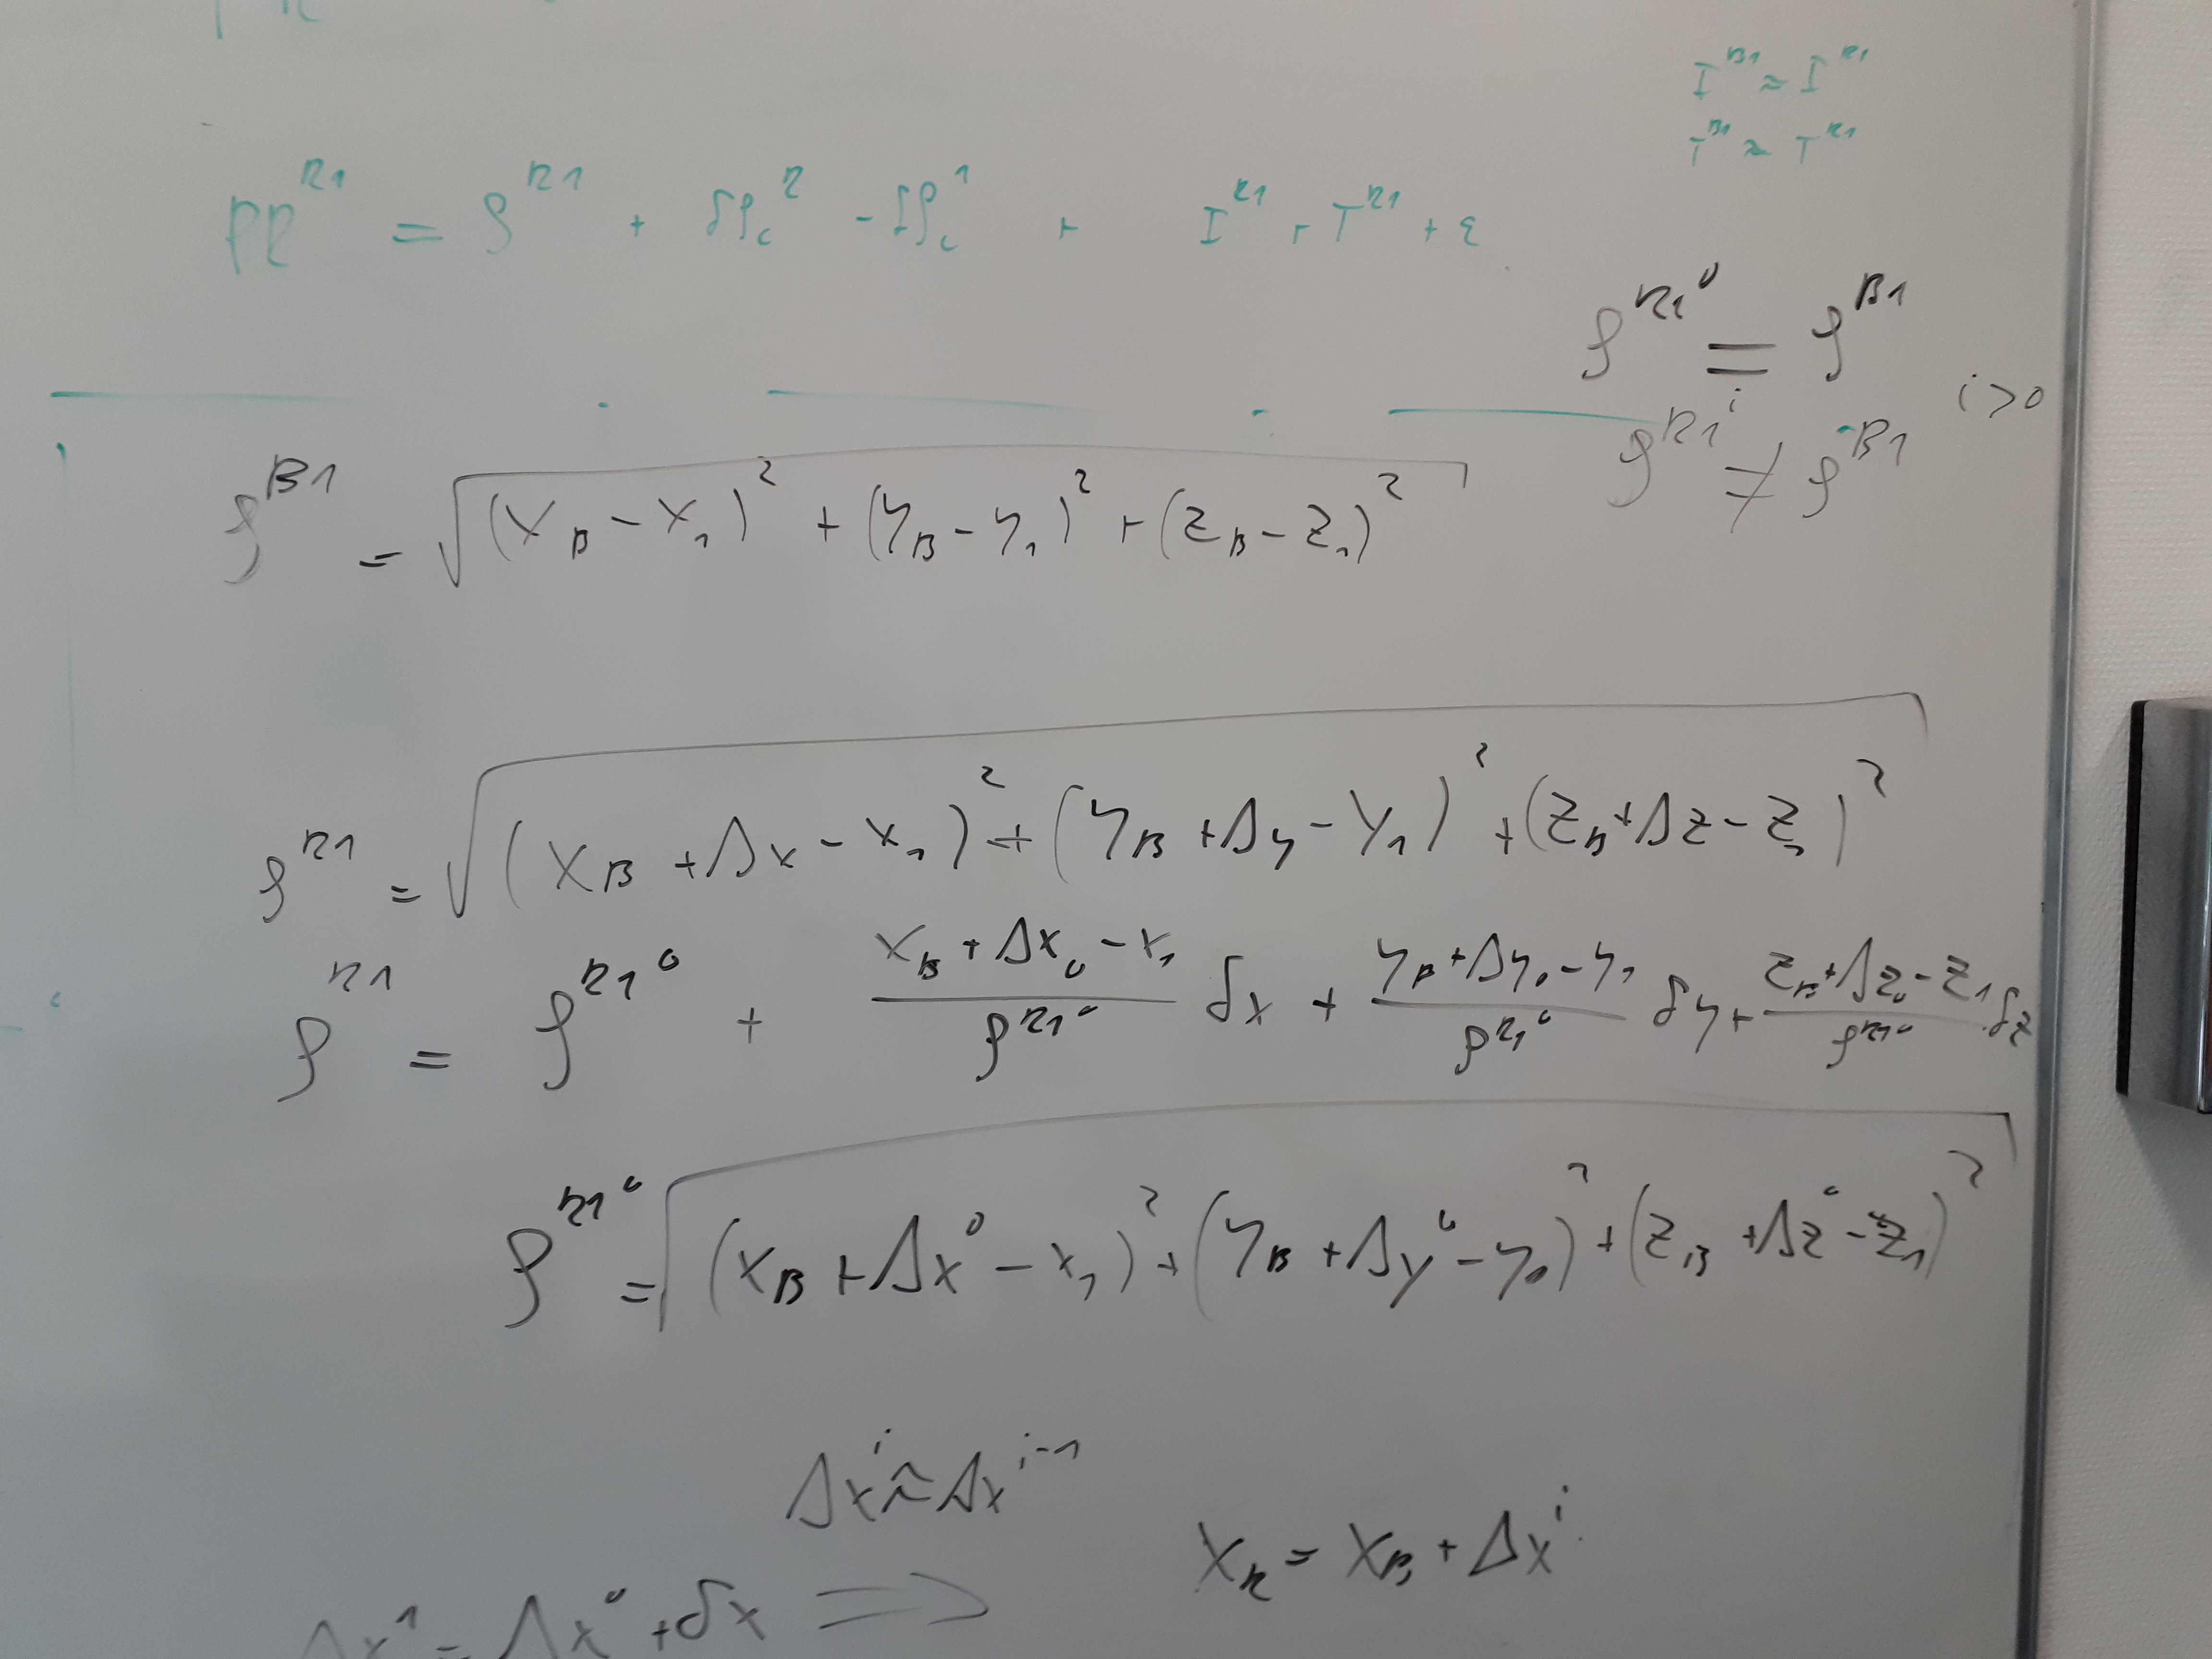 I^{B1} ≈ I^{R1}
T^{B1} ≈ T^{R1}
PR^{R1} = ρ^{R1} + δρ_c^R - δρ_c^1 + I^{R1} + T^{R1} + ε
ρ^{R1^0} = ρ^{B1}
ρ^{R1^i} ≠ ρ^{B1} i>0
ρ^{B1} = √((x_B - x_1)^2 + (y_B - y_1)^2 + (z_B - z_1)^2)
ρ^{R1} = √((x_B + Δx - x_1)^2 + (y_B + Δy - y_1)^2 + (z_B + Δz - z_1)^2)
ρ^{R1} = ρ^{R1^0} + (x_B + Δx_0 - x_1)/ρ^{R1^0} δx + (y_B + Δy_0 - y_1)/ρ^{R1^0} δy + (z_B + Δz_0 - z_1)/ρ^{R1^0} δz
ρ^{R1^0} = √((x_B + Δx^0 - x_1)^2 + (y_B + Δy^0 - y_1)^2 + (z_B + Δz^0 - z_1)^2)
Δx^i ≈ Δx^{i-1}
x_R = x_B + Δx^i
Δx^1 = Δx^0 + δx ⇒